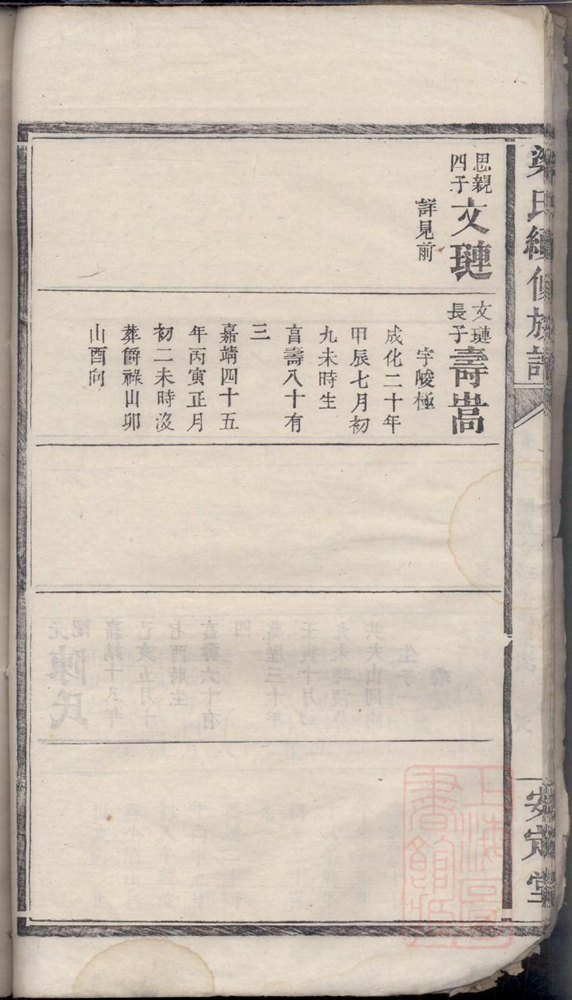 梁氏續修族譜
安定堂
思親
四子
文璉
詳見前
文璉
長子
壽嵩
字峻極
成化二十年
甲辰七月初
九未時生
享壽八十有
三
嘉靖四十五
年丙寅正月
初二未時沒
葬爵祿山卯
山酉向
上海圖
書館藏